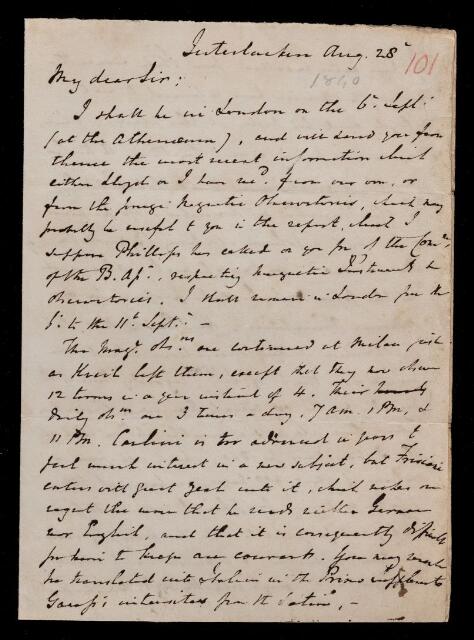 Interlacken Aug. 28th
101
1840
My dear Sir;
I shall be in London on the 6th Septr
(at the Athenaeum), and will send you from
thence the most recent information which
either Lloyd or I have recd. from our own, or
from the foreign Magnetic Observatories, which may
probably be useful to you in the report, which I
suppose Phillips has called on you for of the Comee
of the B. Assn., respecting Magnetic Instruments &
Observatories. I shall remain in London from the
6th to the 11th Septr. –
The Magc. Obsns are continued at Milan just
as Kreil left them, except that they now observe
12 terms in a year instead of 4. Their
daily Obsns are 3 times a day, 7 am. 1 Pm, &
11 Pm. Carlini is too advanced in years to
feel much interest in a new subject, but Frisiani
enters with great zeal into it, which makes me
regret the more that he reads neither German
nor English, and that it is consequently difficult
for him to keep au courant. You may
he translated into Italian in the Primo Supplemento
Gauss's intensitas from the Latin, –